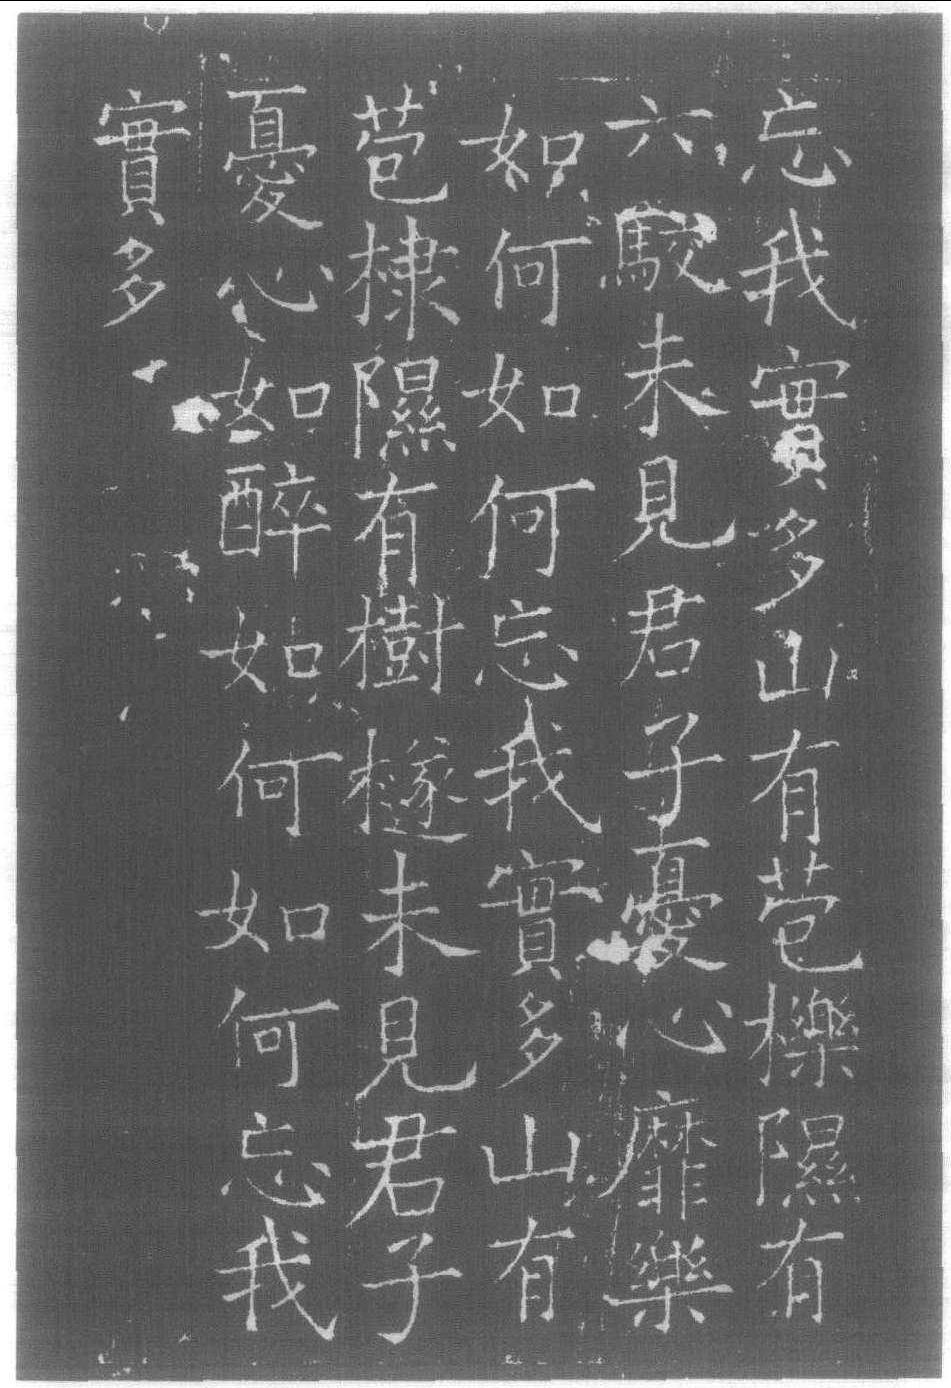 忘我實多山有苞櫟隰有
六駮未見君子憂心靡樂
如何如何忘我實多山有
苞棣隰有樹檖未見君子
憂心如醉如何如何忘我
實多